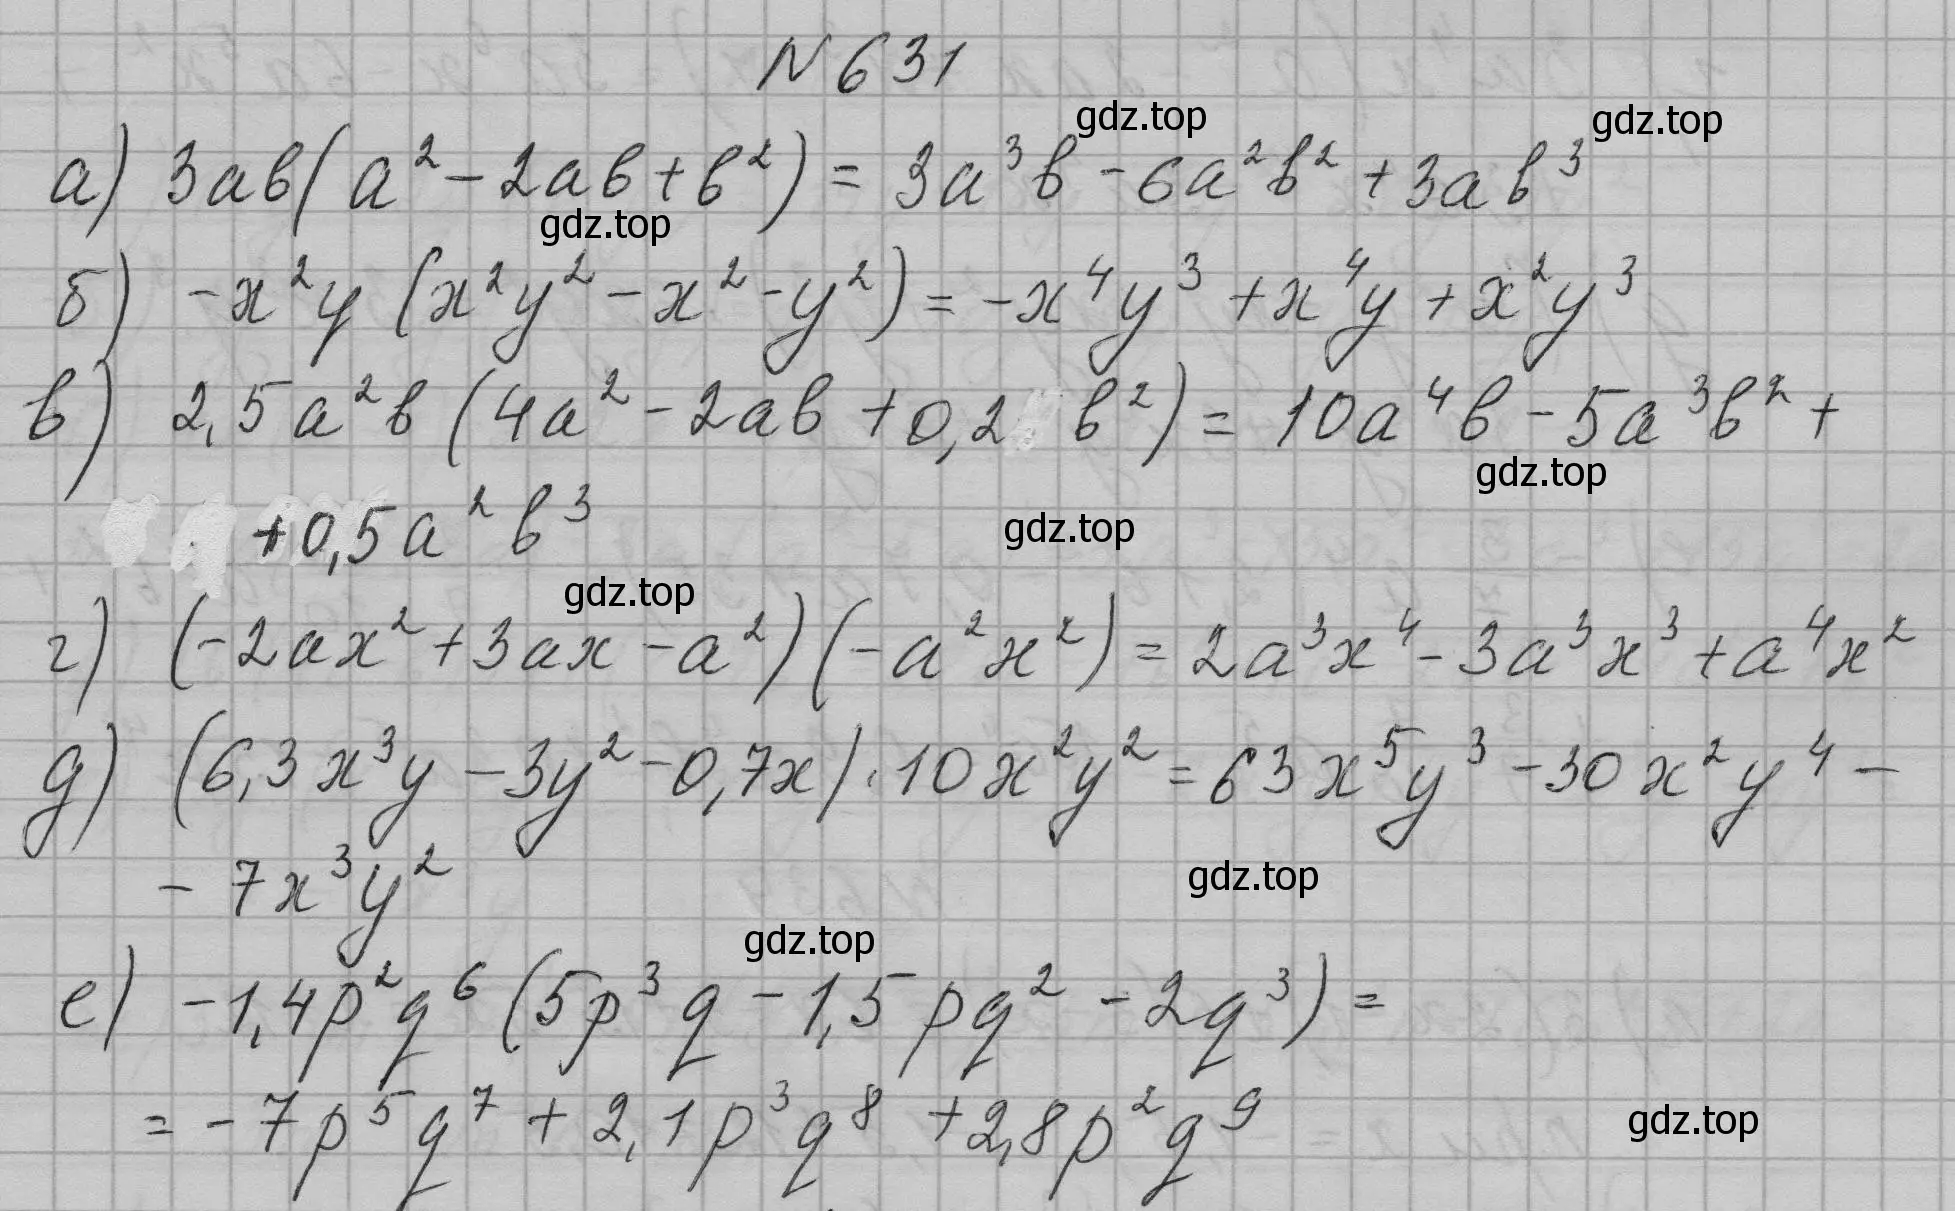 N 631
gdz.top gdz.top
а) 3ab(a² - 2ab + b²) = 3a³b - 6a²b² + 3ab³
gdz.top
б) -x²y (x²y² - x² - y²) = -x⁴y³ + x⁴y + x²y³
в) 2,5a²b (4a² - 2ab + 0,2 b²) = 10a⁴b - 5a³b² +
gdz.top
+ 0,5a²b³
gdz.top
gdz.top
г) (-2ax² + 3ax - a²)(-a²x²) = 2a³x⁴ - 3a³x³ + a⁴x²
д) (6,3x³y - 3y² - 0,7x) · 10x²y² = 63x⁵y³ - 30x²y⁴ -
- 7x³y²
gdz.top
gdz.top
е) -1,4p²q⁶ (5p³q - 1,5pq² - 2q³) =
= -7p⁵q⁷ + 2,1p³q⁸ + 2,8p²q⁹
gdz.top